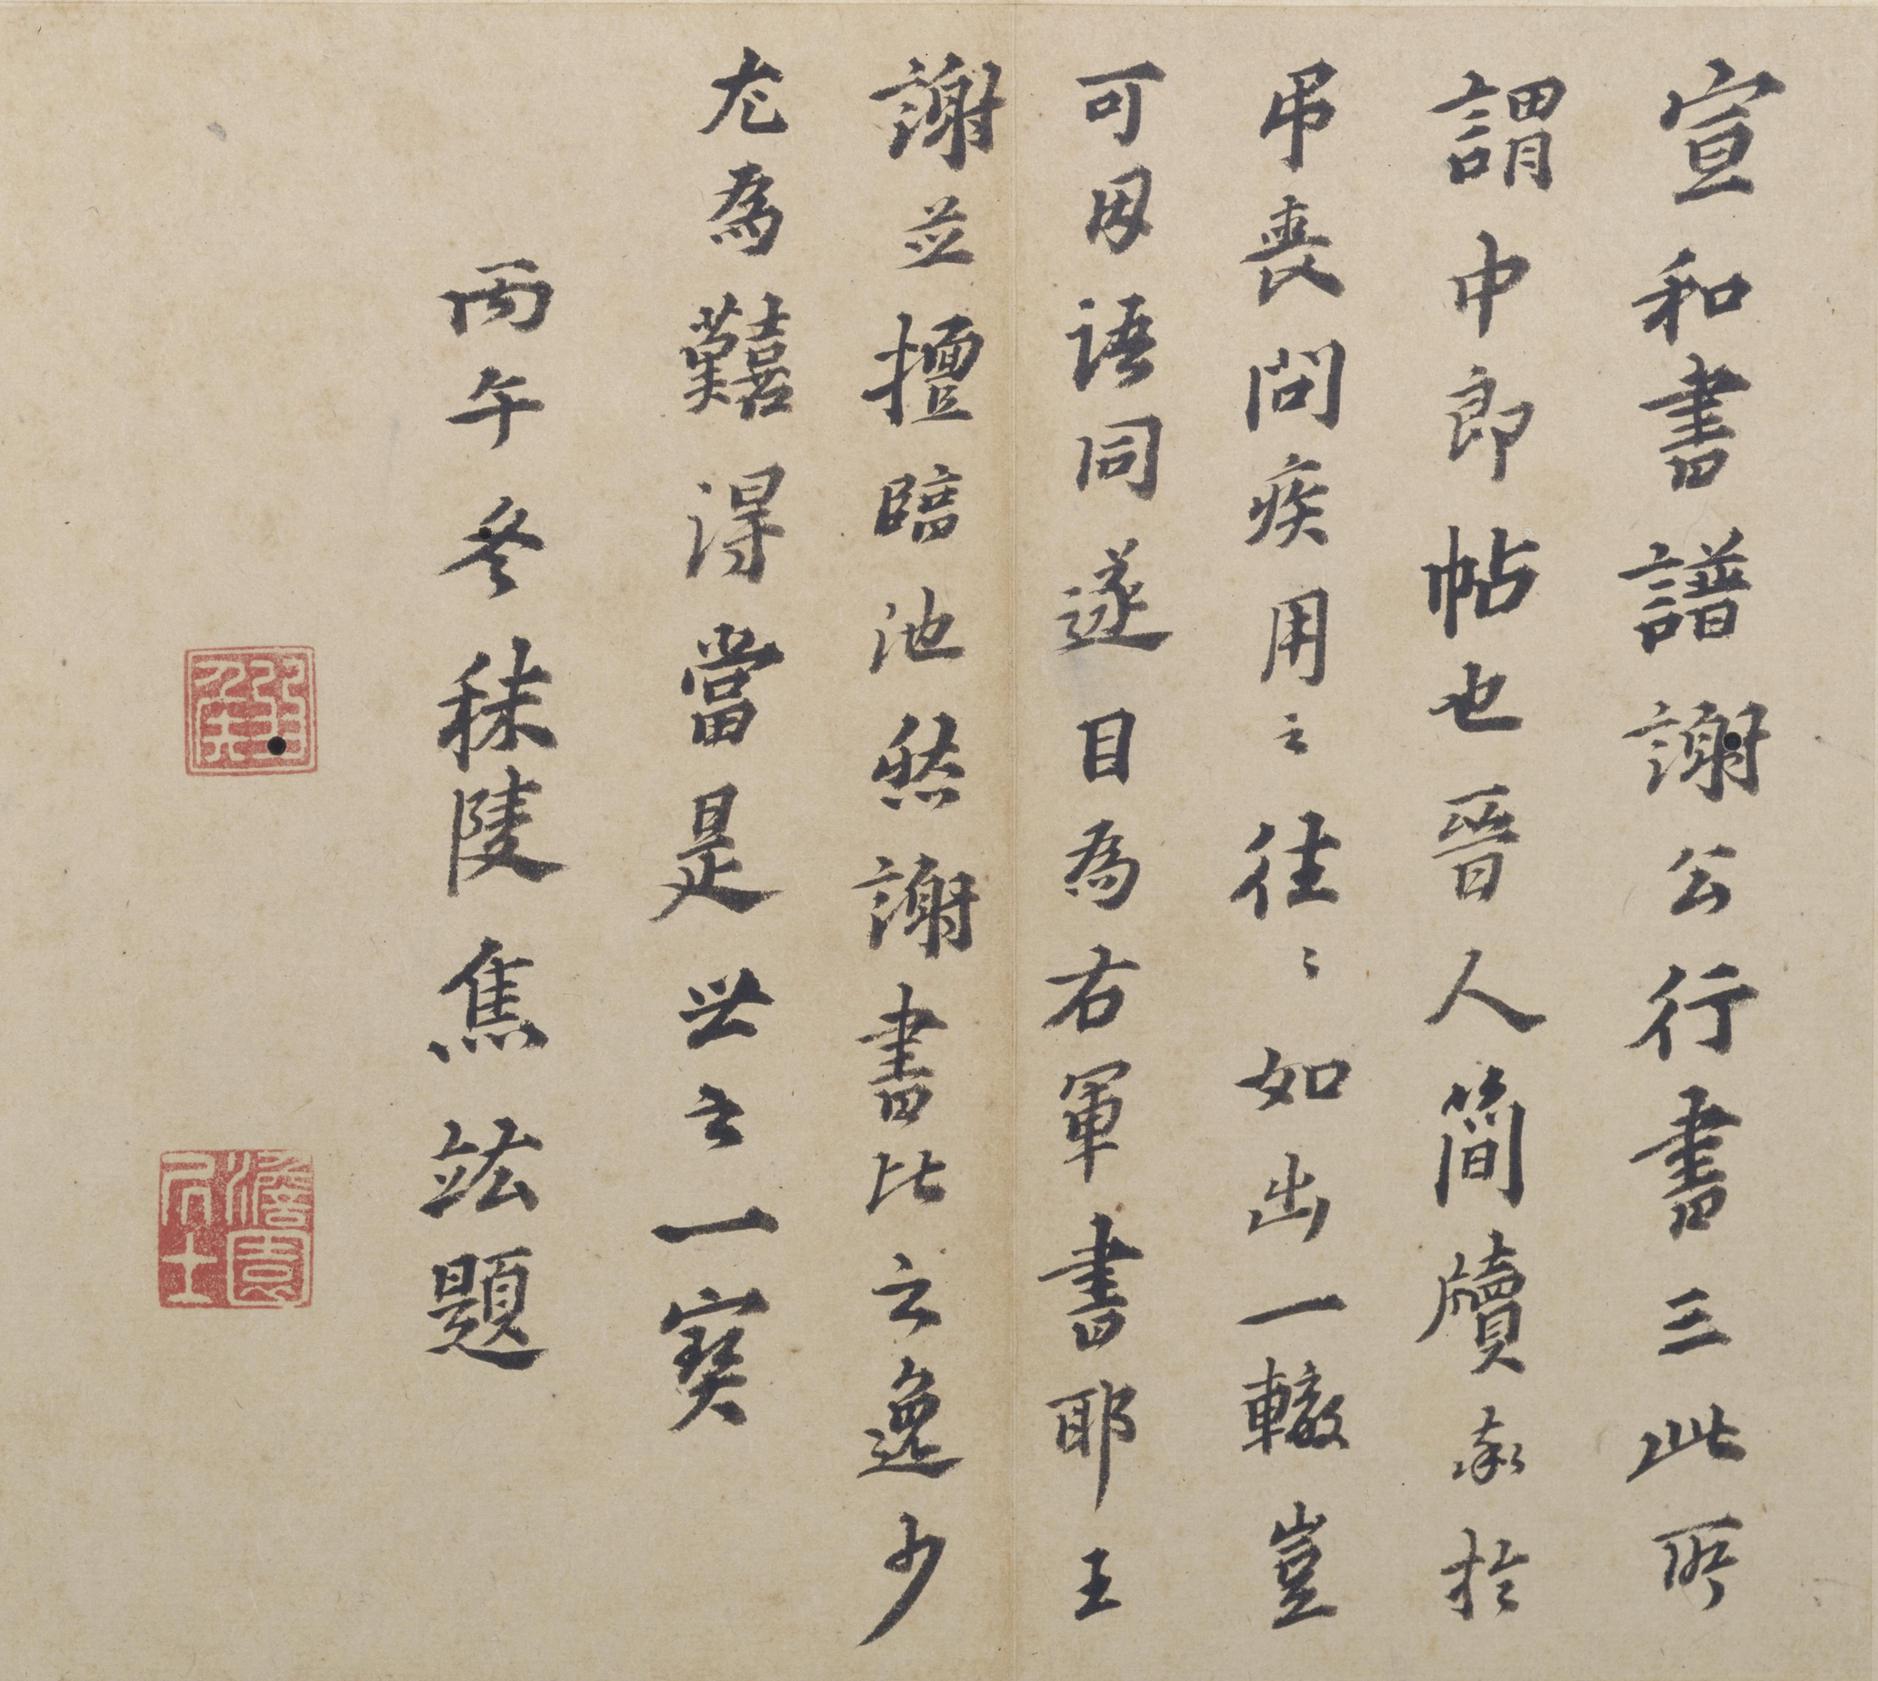 宣和書譜謝公行書三此所
謂中郎帖也晉人簡牘於
吊喪問疾用之往〻如出一轍豈
可因語同遂目為右軍書耶王
謝並擅臨池然謝書比之逸少
尤為難得當是世之一寶
丙午冬秣陵焦竑題
澹園居士